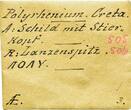 Polyrhenium. Creta.
A. Schild mit Stier-
kopf. 505
R. Lanzenspitz. 506
ΠΟΛΥ.
Æ. 3